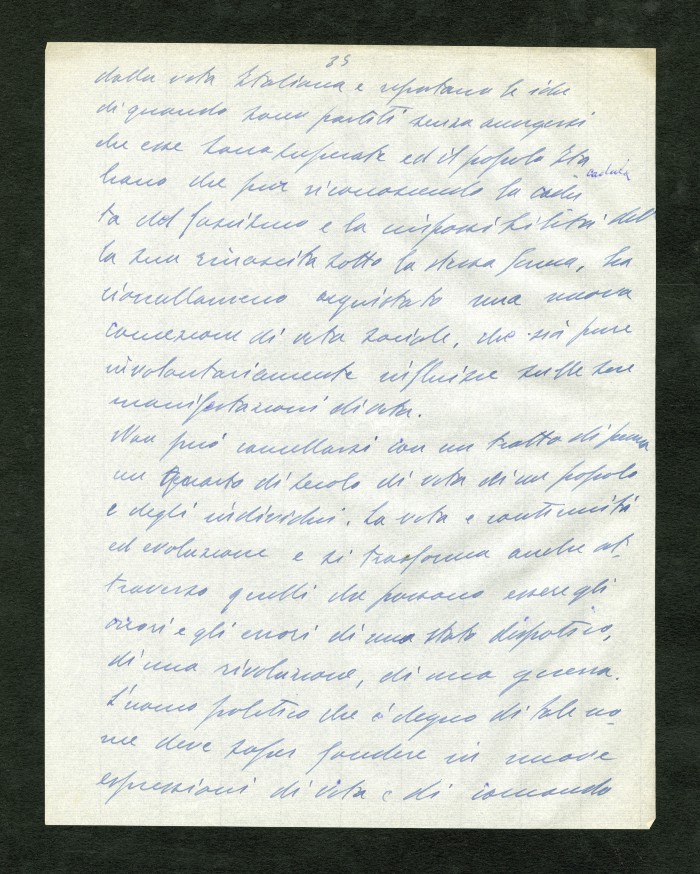 35
dalla vita Italiana e riportano le idee
di quando sono partiti senza accorgersi
che esse sono superate ed il popolo Ita
liano che pur riconoscendo la cadu
caduta
ta del fascismo e la impossibilità del
la sua rinascita sotto la stessa forma, ha
nuova
concezione di vita sociale, che sia pure
involontariamente influisce sulle sue
manifestazioni di vita.
Non può cancellarsi con un tratto di penna
un Quarto di secolo di vita di un popolo
e degli individui. La vita e continuità
ed evoluzione e si trasforma anche at-
traverso quelli che possono essere gli
orrori e gli errori di uno stato dispotico,
di una rivoluzione, di una guerra.
L'uomo politico che è degno di tale no-
me deve saper fondere in nuove
espressioni di vita e di comando